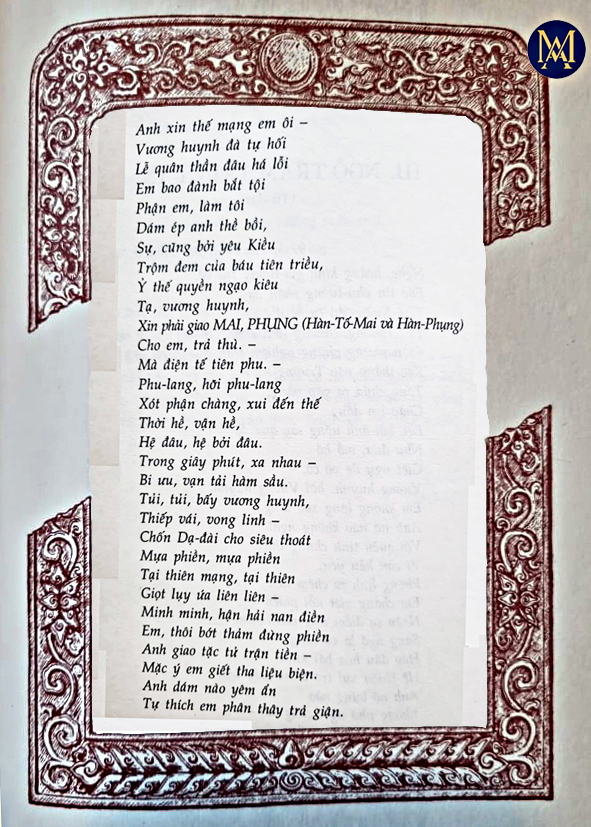 Anh xin thế mạng em ôi –
Vương huynh đà tự hối
Lễ quân thần đâu há lỗi
Em bao đành bắt tội
Phận em, làm tôi
Dám ép anh thề bồi,
Sự, cũng bởi yêu Kiều
Trộm đem của báu tiên triều,
Ỷ thế quyền ngạo kiêu
Tạ, vương huynh,
Xin phải giao MAI, PHỤNG (Hàn-Tố-Mai và Hàn-Phụng)
Cho em, trả thù. –
Mà điện tế tiên phu. –
Phu-lang, hỡi phu-lang
Xót phận chàng, xui đến thế
Thời hề, vận hề,
Hệ đâu, hệ bởi đâu.
Trong giây phút, xa nhau –
Bi ưu, vạn tải hàm sầu.
Tủi, tủi, bấy vương huynh,
Thiếp vái, vong linh –
Chốn Dạ-đài cho siêu thoát
Mựa phiền, mựa phiền
Tại thiên mạng, tại thiên
Giọt lụy ứa liên liên –
Minh minh, hận hải nan điền
Em, thôi bớt thảm đừng phiền
Anh giao tặc tử trận tiền –
Mặc ý em giết tha liệu biện.
Anh dám nào yêm ẩn
Tự thích em phân thây trả giận.